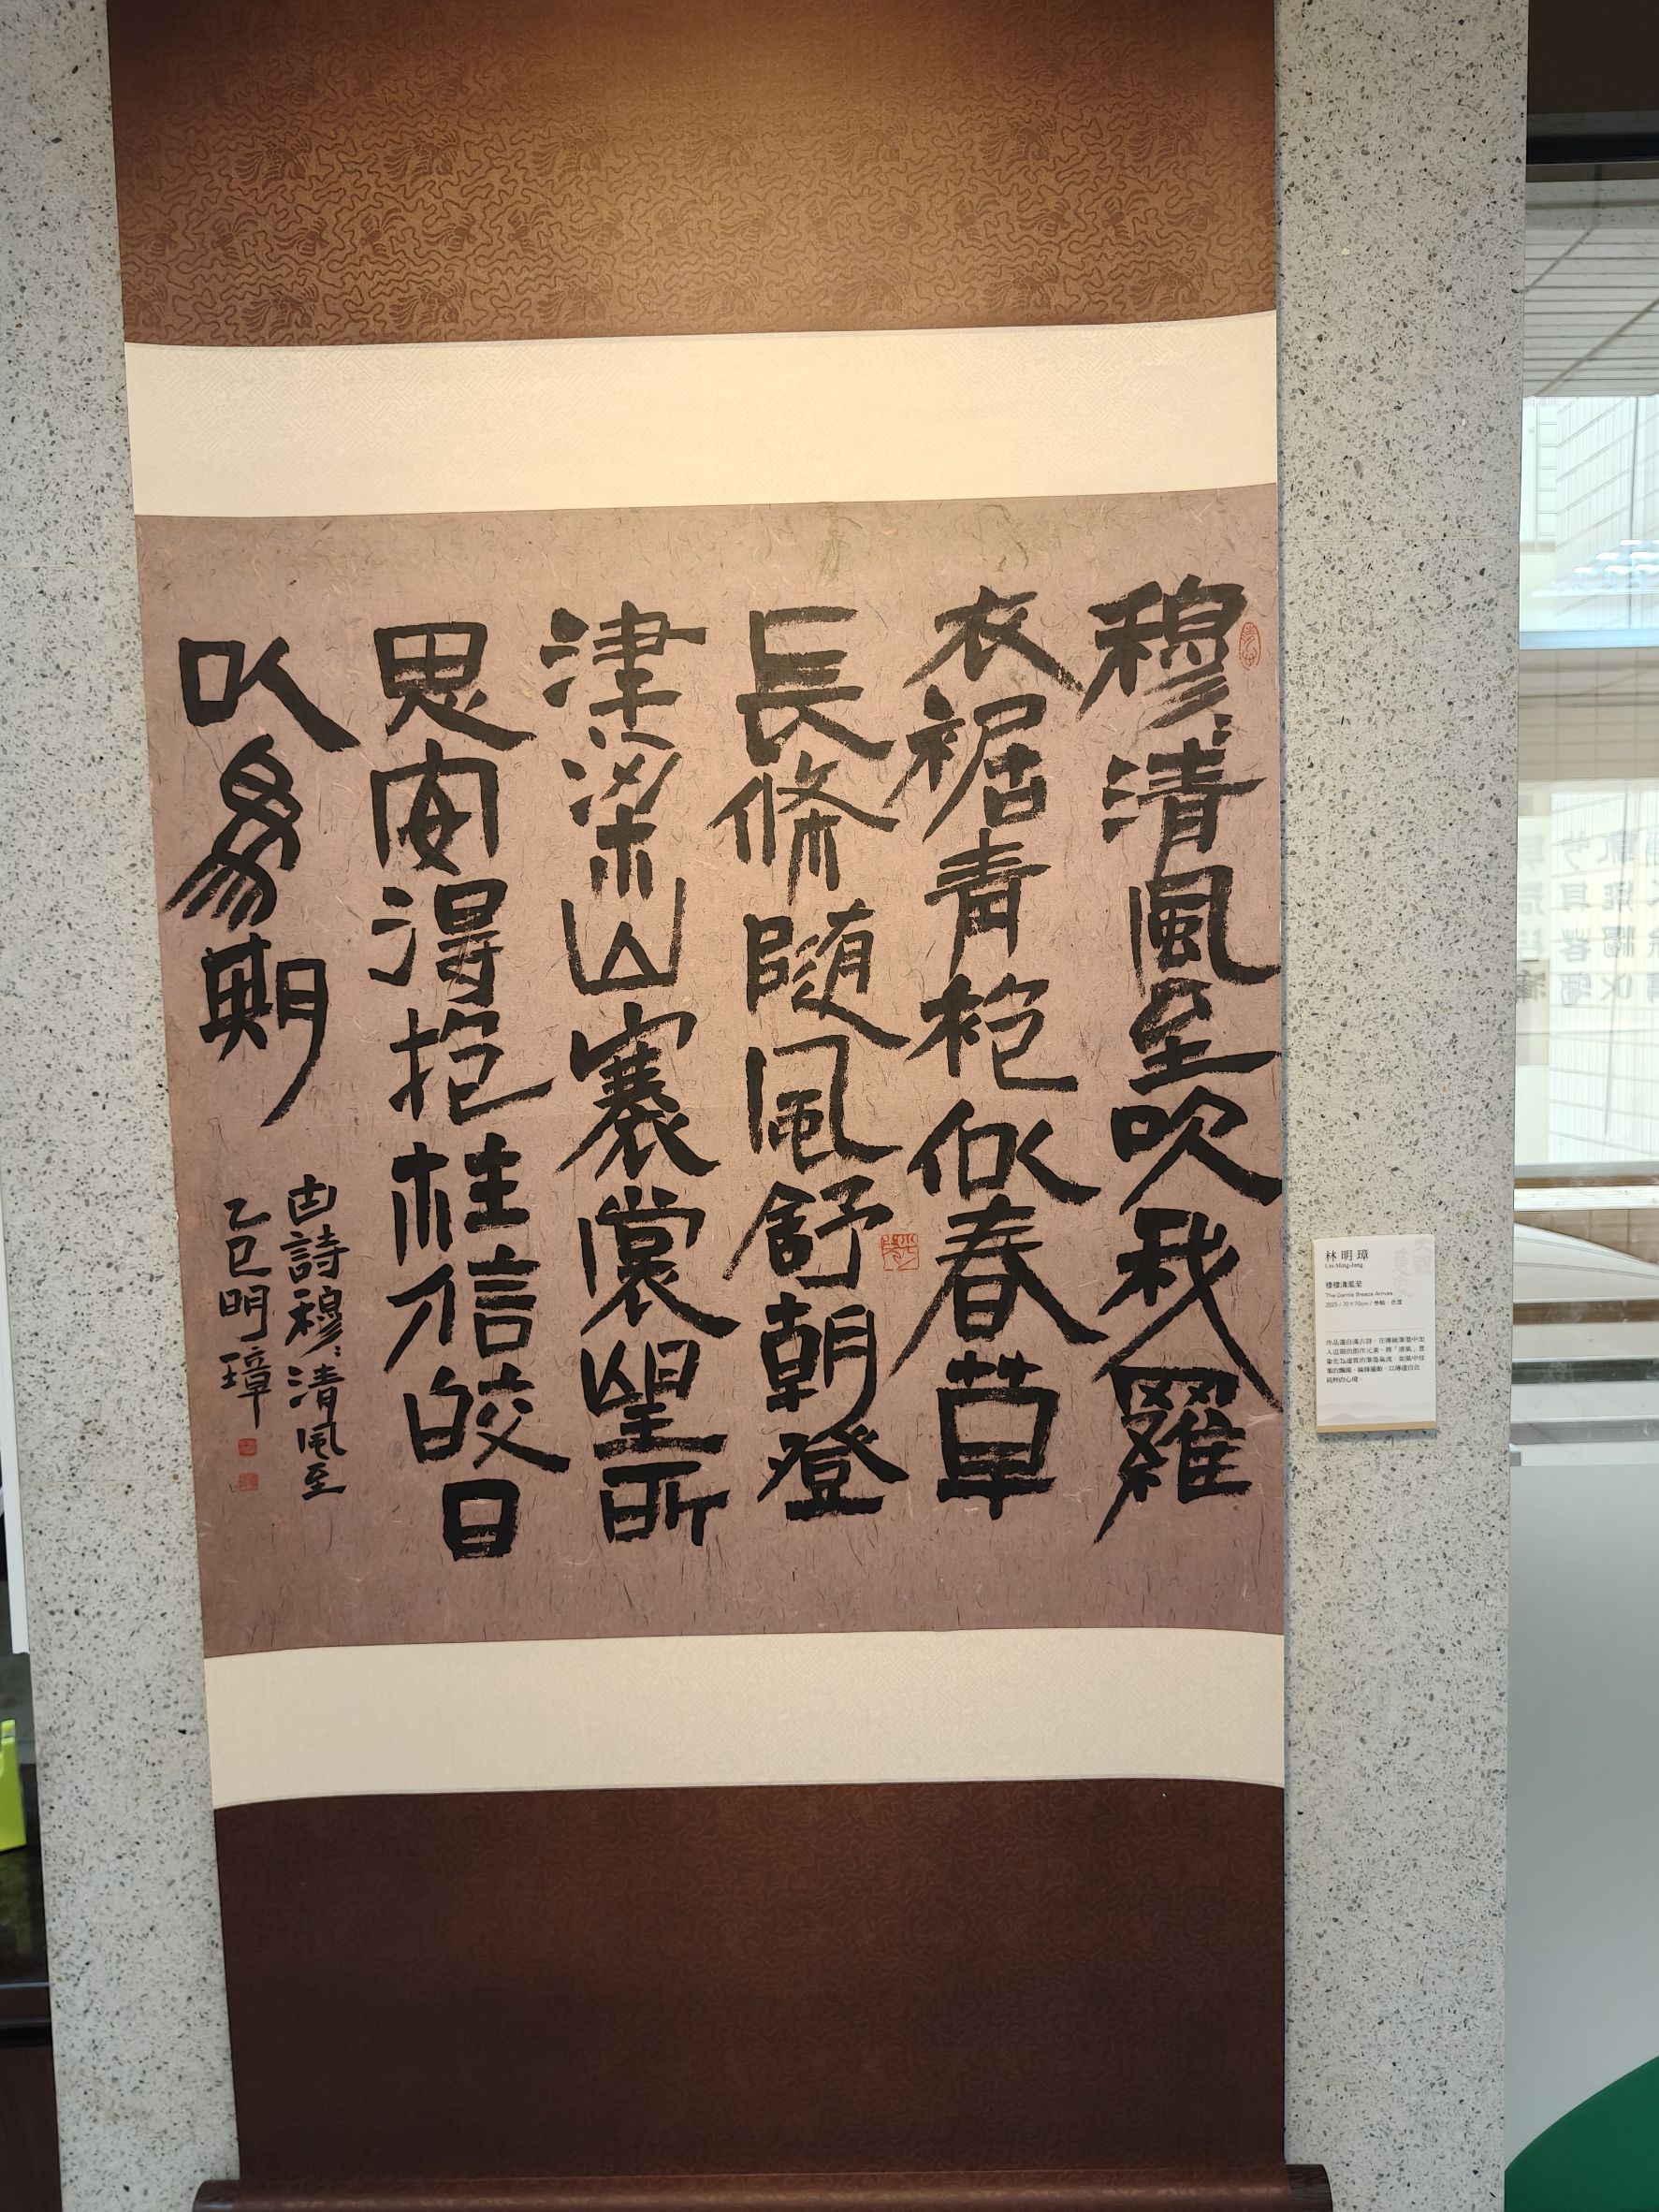 穆〻清風至吹我羅
衣裾青袍似春草
長條随風舒朝登
津梁山褰裳望所
思安得抱柱信皎日
以為期
古詩穆〻清風至
乙巳明璋
林明璋
Lin Ming-Jang
穆穆清風至
The Gentle Breeze Arrives
2025 / 70×70cm /
作品選自漢古詩，在傳統筆墨中加
入近期的創作元素，將「清風」意
象化為運筆的筆墨氣流，如風中枝
葉的飄揚、線條躍動，以傳達自在
純粹的心境。